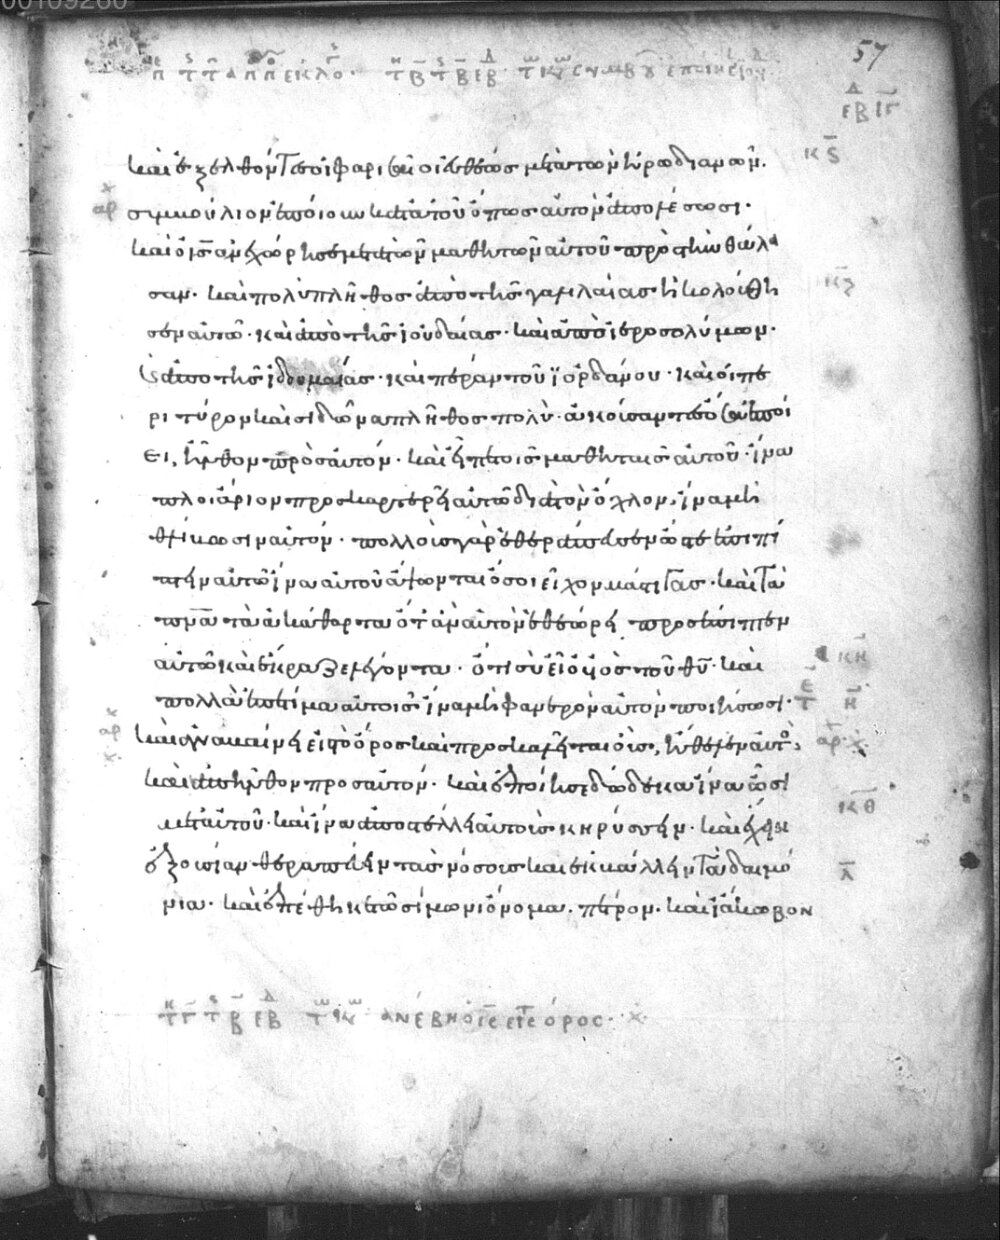 57
κς
καὶ ἐξελθόντες οἱ φαρισαῖοι εὐθέως μετὰ τῶν ἡρωδιανῶν.
συμβούλιον ἐποίουν κατ' αὐτοῦ ὅπως αὐτὸν ἀπολέσωσι.
καὶ ὁ ις ἀνεχώρησε μετὰ τῶν μαθητῶν αὐτοῦ πρὸς τὴν θάλα
κζ
σαν. καὶ πολὺ πλῆθος ἀπὸ τῆς γαλιλαίας ἠκολούθη
σεν αὐτῶ. καὶ ἀπὸ τῆς ἰουδαίας. καὶ ἀπὸ ἱεροσολύμων.
καὶ ἀπὸ τῆς ἰδουμαίας. καὶ πέραν τοῦ ϊορδάνου. καὶ οἱ πε
ρι τύρον καὶ σιδῶνα πλῆθος πολύ. ἀκούσαντες ὅσα ἐποί
ει, ἦλθον πρὸς αὐτόν. καὶ εἶπε τοῖς μαθηταῖς αὐτοῦ. ἵνα
πλοιάριον προσκαρτερῆ αὐτῶ διὰ τὸν ὄχλον, ἵνα μὴ
θλίβωσιν αὐτόν. πολλοὺς γὰρ ἐθεράπευσεν ὥστε ἐπιπί
πτειν αὐτῶ ἵνα αὐτοῦ ἅψωνται ὅσοι εἶχον μάστιγας. καὶ τὰ
πνα τὰ ἀκάθαρτα ὅταν αὐτὸν ἐθεώρει προσέπιπτεν
κη
αὐτῶ καὶ ἔκραζε λέγοντα. ὅτι σὺ εἶ ὁ υἱὸς τοῦ θυ. καὶ
πολλὰ ἐπετίμα αὐτοῖς ἵνα μὴ φανερὸν αὐτὸν ποιήσωσι.
καὶ ἀναβαίνει εἰς τὸ ὄρος καὶ προσκαλεῖται οὓς, ἤθελεν αὐτός
καὶ ἀπῆλθον πρὸς αὐτόν. καὶ ἐποίησε δώδεκα ἵνα ὦσι
κθ
μετ' αὐτοῦ. καὶ ἵνα ἀποστέλλη αὐτοὺς κηρύσσειν. καὶ ἔχειν
ἐξουσίαν θεραπεύειν τὰς νόσους καὶ ἐκβάλλειν τὰ δαιμό
λ
νια. καὶ ἐπέθηκε τῶ σίμωνι ὄνομα. πέτρον. καὶ ἰάκωβον
ἀνέβη ὁ ις εἰς τὸ ὄρος